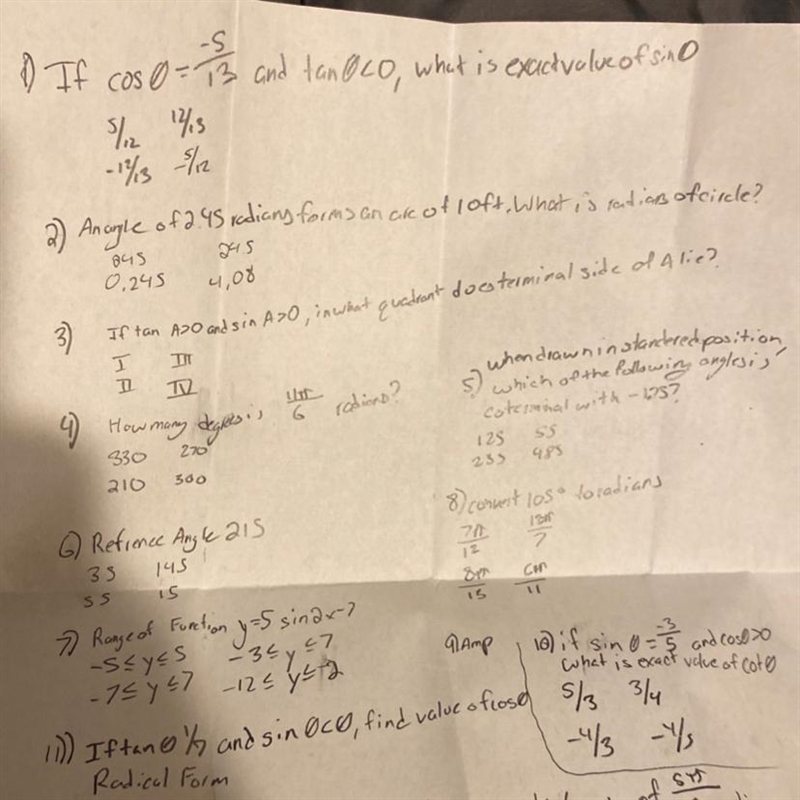 1) If cos θ = -5/13 and tan θ<0, what is exact value of sin θ
5/12 12/13
-12/13 -5/12
2) An angle of 2.45 radians forms an arc of 10ft. What is radians of circle?
245
0.245 4.08
3) If tan A>0 and sin A>0, in what quadrant does terminal side of A lie?
I III
II IV
4) How many degrees is 11π/6 radians?
330 270
210 300
5) when drawn in standered position,
which of the following angles is
coterminal with
125 55
235 485
6) Refrence Angle 215
35 145
55 15
8) convert 105° to radians
7π/12 /7
8π/15 /11
7) Range of Function y=5 sin2x-7
-5≤y≤5 -3≤y≤7
-7≤y≤7 -12≤y≤-2
9) Amp
10) if sin θ = -3/5 and cosθ>0
what is exact value of cot θ
5/3 3/4
-4/3 -4/5
11) If tan θ 1/7 and sin θ<0, find value of cosθ
Radical Form
of